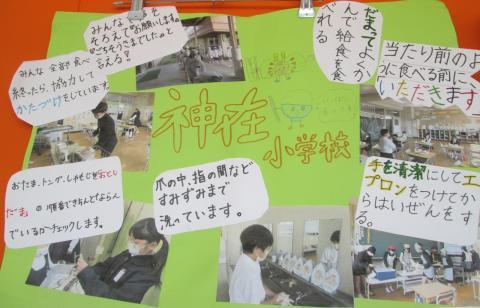 みんな
そろえて『お願いします。』
『ごちそうさまでした』と
言える!
だまってよくか
んで給食を食
べれる
当たり前のお
水に食べる前に
いただきます
みんな全部食べ
終ったら、協力して
かたづけをしています。
神在
小学校
おたま、トング、しゃもじをおとし
だま の順番できちんとならん
でいるかチェックします。
爪の中、指の間など
すみずみまで
洗っています。
手を清潔にしてエ
プロンをつけてか
らはいぜんをす
る。